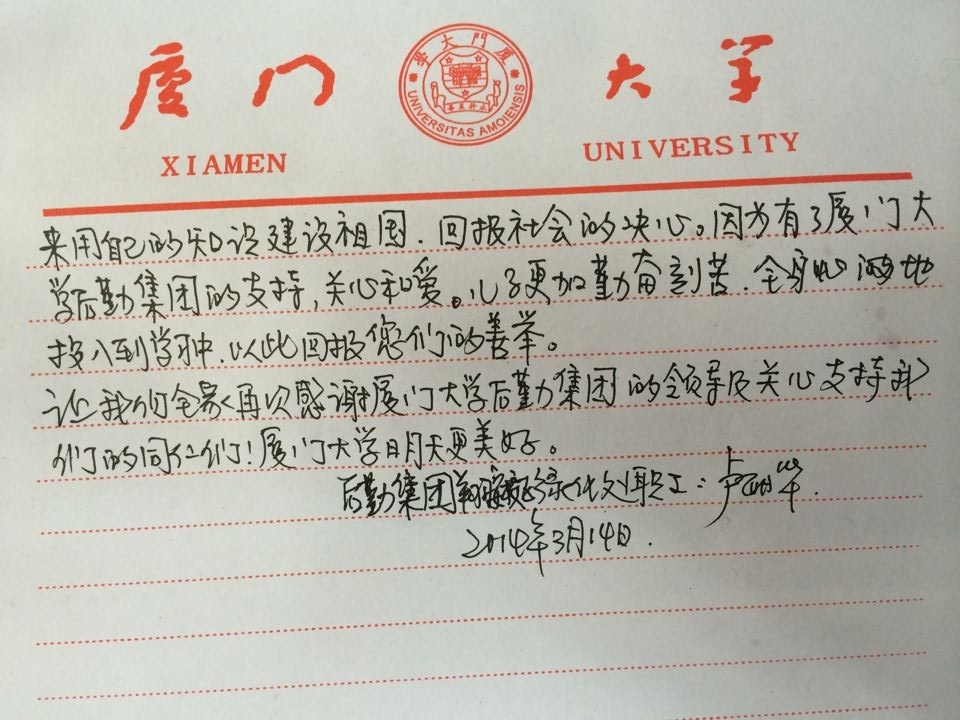 厦门大学
學大門廈
UNIVERSITAS AMOIENSIS
XIAMEN UNIVERSITY
来用自己的知识建设祖国.回报社会的决心。因为有了厦门大
学后勤集团的支持,关心和爱。儿子更加勤奋刻苦.全身心的地
投入到学习中.以此回报您们的善举。
让我们全家再次感谢厦门大学后勤集团的领导及关心支持我
们的同仁们!厦门大学明天更美好。
后勤集团翔安校区绿化 职工:卢 华.
2014年3月14日.